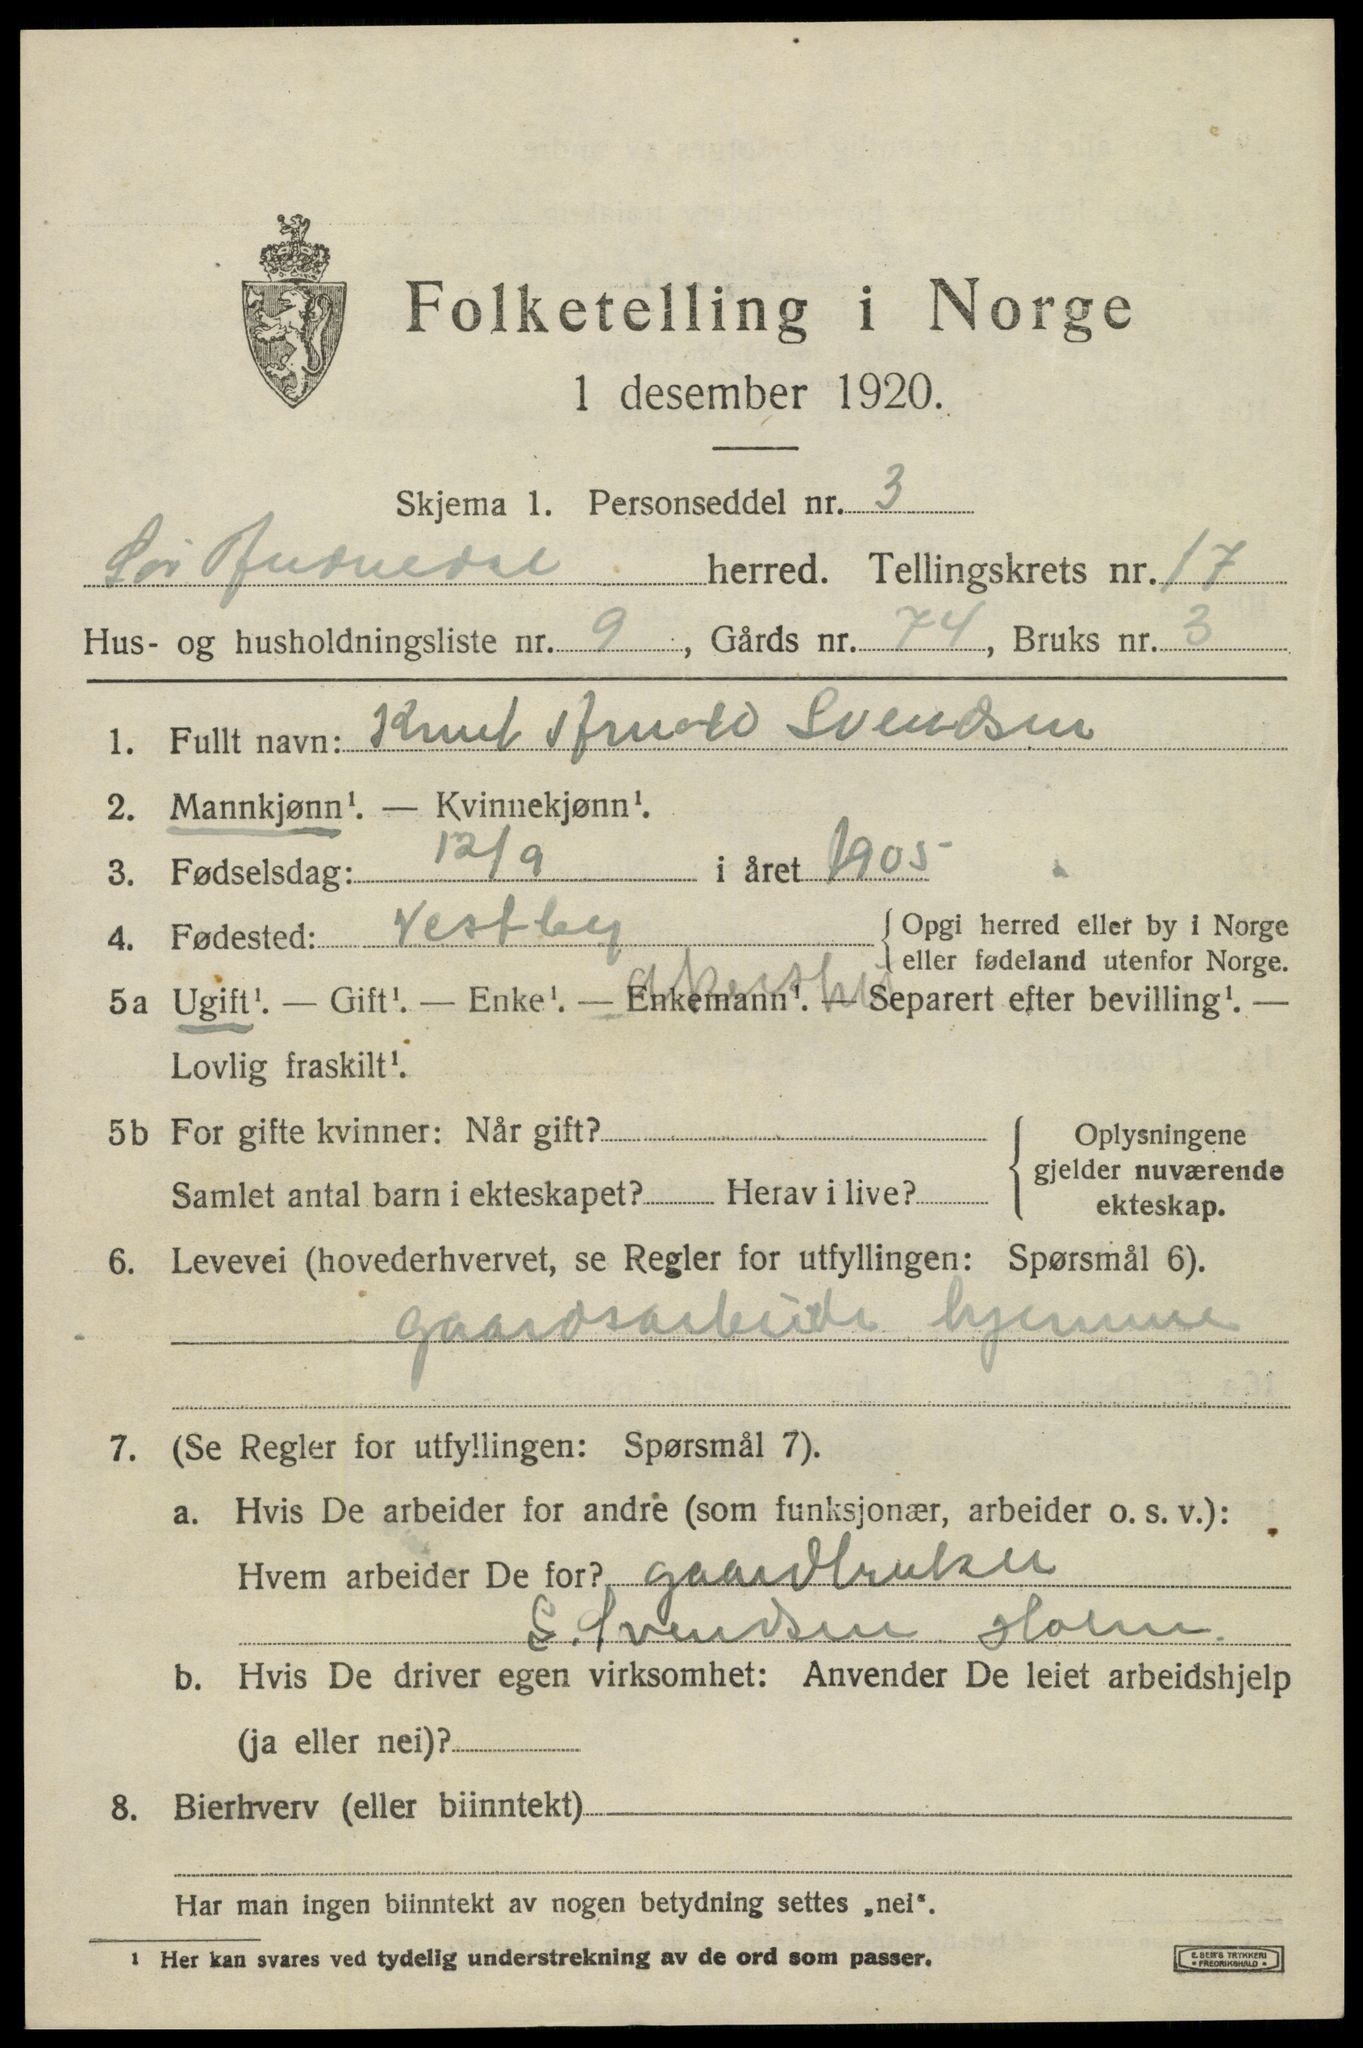 Folketelling i Norge
1 desember 1920.
Skjema 1. Personseddel nr. 3
Sør Audnedal herred. Tellingskrets nr. 17
Hus- og husholdningsliste nr. 9, Gårds nr. 74, Bruks nr. 3
1. Fullt navn: Knut Arnold Svendsen
2. Mannkjønn¹. — Kvinnekjønn¹.
3. Fødselsdag: 12/9 i året 1905
4. Fødested: Vestby { Opgi herred eller by i Norge
eller fødeland utenfor Norge.
Akershus
5a Ugift¹. — Gift¹. — Enke¹. — Enkemann¹. — Separert efter bevilling¹. —
Lovlig fraskilt¹.
5b For gifte kvinner: Når gift?
Samlet antal barn i ekteskapet? Herav i live?
{ Oplysningene
gjelder nuværende
ekteskap.
6. Levevei (hovederhvervet, se Regler for utfyllingen: Spørsmål 6).
gaardsarbeide hjemme
7. (Se Regler for utfyllingen: Spørsmål 7).
a. Hvis De arbeider for andre (som funksjonær, arbeider o. s. v.):
Hvem arbeider De for? gaardbruker
S. Svendsen Holm.
b. Hvis De driver egen virksomhet: Anvender De leiet arbeidshjelp
(ja eller nei)?
8. Bierhverv (eller biinntekt)
Har man ingen biinntekt av nogen betydning settes „nei“.
¹ Her kan svares ved tydelig understrekning av de ord som passer.
E. SEM'S TRYKKERI
• FREDRIKSHALD •